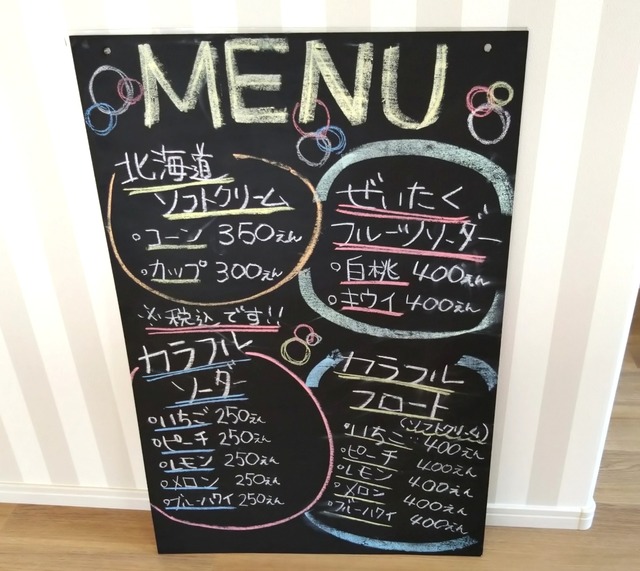 MENU
北海道
ソフトクリーム
○コーン 350えん
○カップ 300えん
※税込です!!
ぜいたく
フルーツソーダー
○白桃 400えん
○キウイ 400えん
カラフル
ソーダー
○いちご 250えん
○ピーチ 250えん
○レモン 250えん
○メロン 250えん
○ブルーハワイ 250えん
カラフル
フロート
(ソフトクリーム)
○いちご 400えん
○ピーチ 400えん
○レモン 400えん
○メロン 400えん
○ブルーハワイ 400えん